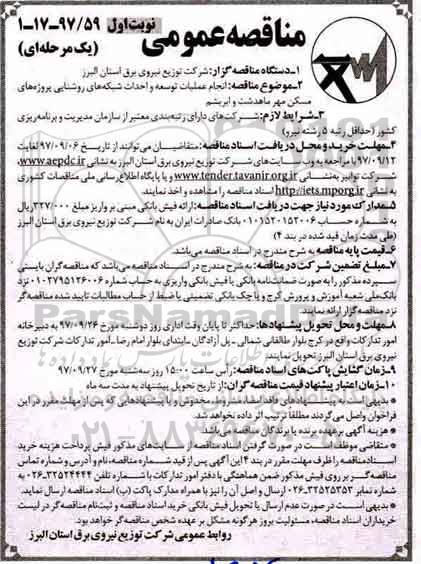 مناقصه عمومی
نوبت اول
۱-۱۷-۹۷/۵۹
(یک مرحله‌ای)
۱-دستگاه مناقصه گزار: شرکت توزیع نیروی برق استان البرز
۲-موضوع مناقصه: انجام عملیات توسعه و احداث شبکه‌های روشنایی پروژه‌های
مسکن مهر ماهدشت و ابریشم
۳-شرایط لازم: شرکت‌های دارای رتبه‌بندی معتبر از سازمان مدیریت و برنامه‌ریزی
کشور (حداقل رتبه ۵ رشته نیرو)
۴-مهلت خرید و محل دریافت اسناد مناقصه: متقاضیان می‌توانند از تاریخ ۹۷/۰۹/۰۶ لغایت
۹۷/۰۹/۱۲ با مراجعه به وب سایت‌های شرکت توزیع نیروی برق استان البرز به نشانی www.aepdc.ir،
شرکت توانیر به‌نشانی www.tender.tavanir.org.ir و یا پایگاه اطلاع‌رسانی ملی مناقصات کشوری
به نشانی http://iets.mporg.ir اسناد مناقصه را مشاهده و اخذ نمایند.
۵-مدارک مورد نیاز جهت دریافت اسناد مناقصه: ارائه فیش بانکی مبنی بر واریز مبلغ ۳۲۷/۰۰۰ ریال
به شماره حساب ۰۱۰۱۵۲۰۱۵۲۰۰۶ بانک صادرات ایران به نام شرکت توزیع نیروی برق استان البرز
(طی مدت زمان قید شده در بند ۴)
۶-قیمت پایه مناقصه به شرح مندرج در اسناد مناقصه می‌باشد.
۷-مبلغ تضمین شرکت در مناقصه: به شرح مندرج در اسناد مناقصه می‌باشد که مناقصه‌گران بایستی
سپرده مذکور را به صورت ضمانت‌نامه بانکی یا فیش بانکی واریزی به حساب شماره ۰۱۰۲۷۹۵۱۲۶۰۰۶ نزد
بانک ملی شعبه آموزش و پرورش کرج و یا چک بانکی تضمینی یا ضبط از حساب مطالبات تایید شده مناقصه‌گر
نزد مناقصه گزار ارائه نمایند.
۸-مهلت و محل تحویل پیشنهادها: حداکثر تا پایان وقت اداری روز دوشنبه مورخ ۹۷/۰۹/۲۶ به دبیرخانه
امور تدارکات واقع در کرج بلوار طالقانی شمالی - پل آزادگان - ابتدای بلوار امام رضا - امور تدارکات شرکت توزیع
نیروی برق استان البرز تحویل نمایند.
۹-زمان گشایش پاکت‌های اسناد مناقصه: رأس ساعت ۱۵:۰۰ روز سه‌شنبه مورخ ۹۷/۰۹/۲۷
۱۰-زمان اعتبار پیشنهاد قیمت مناقصه گران: از تاریخ تحویل پیشنهاد به مدت سه ماه
* بدیهی است به پیشنهادهای فاقد امضاء، مشروط، مخدوش و یا پیشنهادهایی که پس از مهلت مقرر در این
فراخوان واصل می‌گردند مطلقا ترتیب اثر داده نخواهد شد.
* هزینه آگهی برعهده برنده یا برندگان مناقصه می‌باشد.
* متقاضی موظف است در صورت گرفتن اسناد مناقصه از سایت‌های مذکور فیش پرداخت هزینه خرید
اسناد مناقصه را ظرف مهلت مقرر در بند ۴ این آگهی پس از قید شماره مناقصه، نام و آدرس و شماره تماس
مناقصه‌گر بر روی فیش مذکور ضمن هماهنگی با دفتر امور تدارکات با شماره تلفن ۳۲۵۲۴۴۴۴-۰۲۶ به
شماره نمابر ۳۲۵۲۵۳۵۳-۰۲۶ ارسال و اصل آن را نیز با همراه مدارک پاکت (ب) اسناد مناقصه ارسال نماید.
* بدیهی است در صورت عدم ارسال یا تحویل فیش بانکی خرید اسناد مناقصه و ثبت‌نام مناقصه‌گر در لیست
خریداران اسناد مناقصه، مسئولیت بروز هرگونه مشکل بر عهده شخص مناقصه‌گر خواهد بود.
روابط عمومی شرکت توزیع نیروی برق استان البرز
ParsNamadData